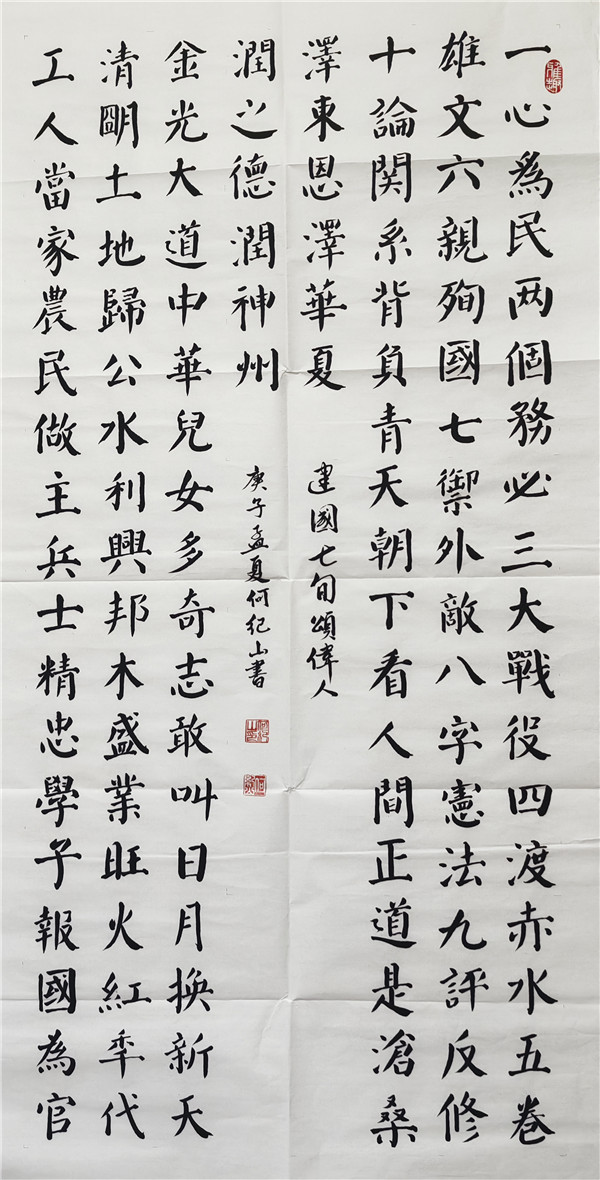 一心爲民两個務必三大戰役四渡赤水五卷
雄文六親殉國七禦外敵八字憲法九評反修
十論関系背負青天朝下看人間正道是滄桑
澤東恩澤華夏
建國七旬頌偉人
工人當家農民做主兵士精忠學子報國為官
清朙土地歸公水利興邦木盛業旺火紅秊代
金光大道中華兒女多奇志敢叫日月換新天
潤之德潤神州
庚子孟夏何纪山書